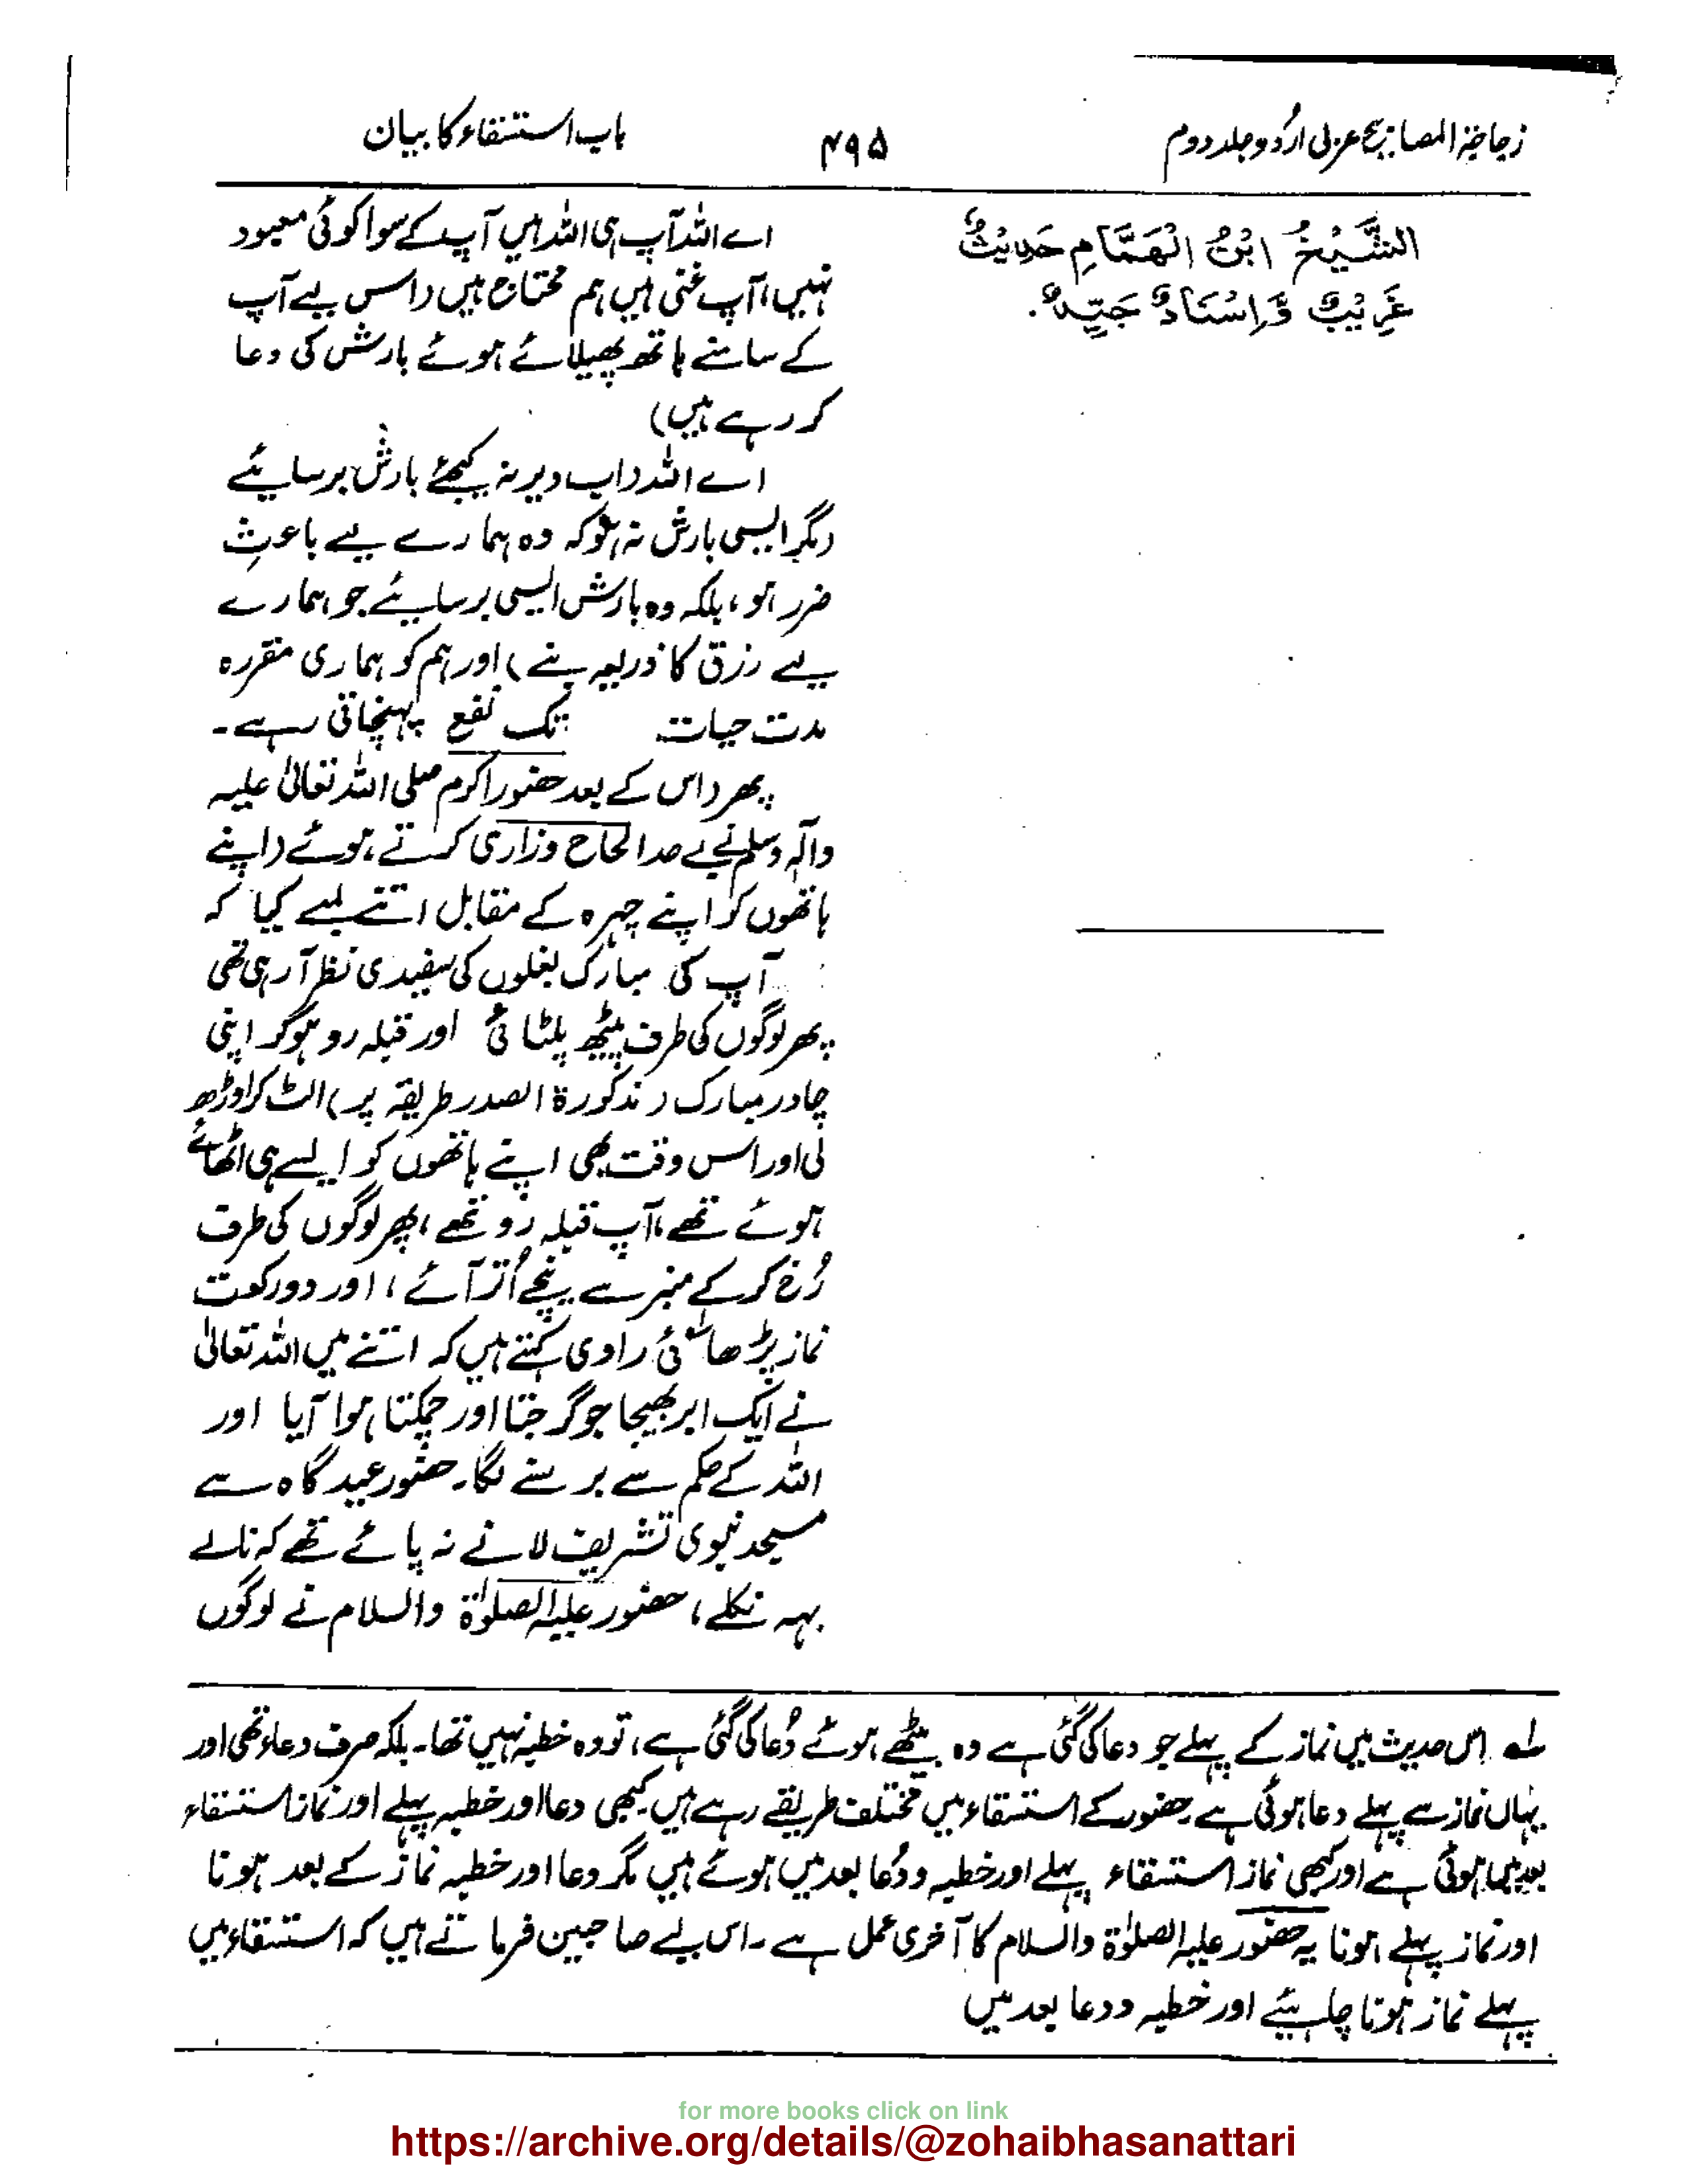 زجاجۃ المصابیح عربی اردو جلد دوم
۴۹۵
باب استسقاء کا بیان
الشَّيْخُ ابْنُ الْهَمَّامِ حَدِيْثٌ
غَرِيْبٌ وَّاِسْنَادٌ جَيِّدٌ.
اے اللہ آپ ہی اللہ ہیں آپ کے سوا کوئی معبود
نہیں، آپ غنی ہیں ہم محتاج ہیں (اس لیے آپ
کے سامنے ہاتھ پھیلائے ہوئے بارش کی دعا
کر رہے ہیں)
اے اللہ (اب دیر نہ کیجئے بارش برسایئے
(مگر ایسی بارش نہ ہو کہ وہ ہمارے لیے باعثِ
ضرر ہو، بلکہ وہ بارش ایسی برسایئے جو ہمارے
لیے رزق کا ذریعہ بنے) اور ہم کو ہماری مقررہ
مدت حیات تک نفع پہنچاتی رہے۔
پھر (اس کے بعد حضور اکرم صلی اللہ تعالیٰ علیہ
وآلہ وسلم نے بے صد الحاح وزاری کرتے ہوئے (اپنے
ہاتھوں کو اپنے چہرہ کے مقابل اتنے لمبے کیا کہ
آپ کی مبارک بغلوں کی سفیدی نظر آرہی تھی
پھر لوگوں کی طرف پیٹھ پلٹائی اور قبلہ رو ہو کر اپنی
چادر مبارک (مذکورۃ الصدر طریقہ پر) الٹ کر اوڑھ
لی اور اس وقت بھی اپنے ہاتھوں کو ایسے ہی اٹھائے
ہوئے تھے، آپ قبلہ رو تھے، پھر لوگوں کی طرف
رُخ کر کے منبر سے نیچے اُتر آئے، اور دو رکعت
نماز پڑھائی راوی کہتے ہیں کہ اتنے میں اللہ تعالیٰ
نے ایک ابر بھیجا جو گرجتا اور چمکتا ہوا آیا اور
اللہ کے حکم سے برسنے لگا۔ حضور عید گاہ سے
مسجد نبوی تشریف لانے نہ پائے تھے کہ نالے
بہہ نکلے، حضور علیہ الصلوٰۃ والسلام نے لوگوں
لہ اس حدیث میں نماز کے پہلے جو دعا کی گئی ہے وہ بیٹھے ہوئے دُعا کی گئی ہے، تو وہ خطبہ نہیں تھا۔ بلکہ صرف دعاء تھی اور
یہاں نماز سے پہلے دعا ہوئی ہے حضور کے استسقاء میں مختلف طریقے رہے ہیں۔ کبھی دعا اور خطبہ پہلے اور نماز استسقاء
بعد میں ہوئی ہے اور کبھی نماز استسقاء پہلے اور خطبہ ودُعا بعد میں ہوئے ہیں مگر دعا اور خطبہ نماز کے بعد ہونا
اور نماز پہلے ہونا یہ حضور علیہ الصلوٰۃ والسلام کا آخری عمل ہے۔ اس لیے صاحبین فرماتے ہیں کہ استسقاء میں
پہلے نماز ہونا چاہیئے اور خطبہ ودعا بعد میں
for more books click on link
https://archive.org/details/@zohaibhasanattari